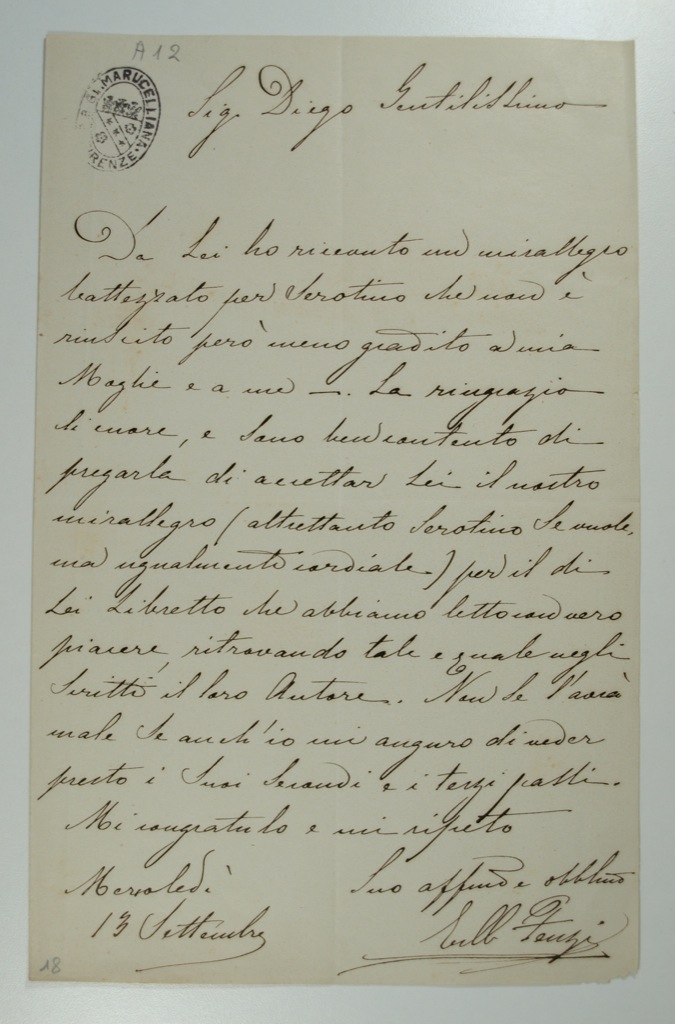 A 12
MARUCELLIANA
Sig. Diego Gentilissimo
Da Lei ho ricevuto un mirallegro
battezzato per Serotino che non è
riuscito però meno gradito a mia
Moglie e a me —. La ringrazio
di cuore, e sono ben contento di
pregarla di accettar Lei il nostro
mirallegro (altrettanto Serotino se vuole,
ma ugualmente cordiale) per il di
Lei Libretto che abbiamo letto con vero
piacere, ritrovando tale e quale negli
Scritti il loro Autore. Non se l'avrà
male se anch'io mi auguro di veder
presto i Suoi secondi e i terzi passi.
Mi congratulo e mi ripeto
Mercoledì
13 Settembre
Suo affmo e obblmo
Fenzi
18